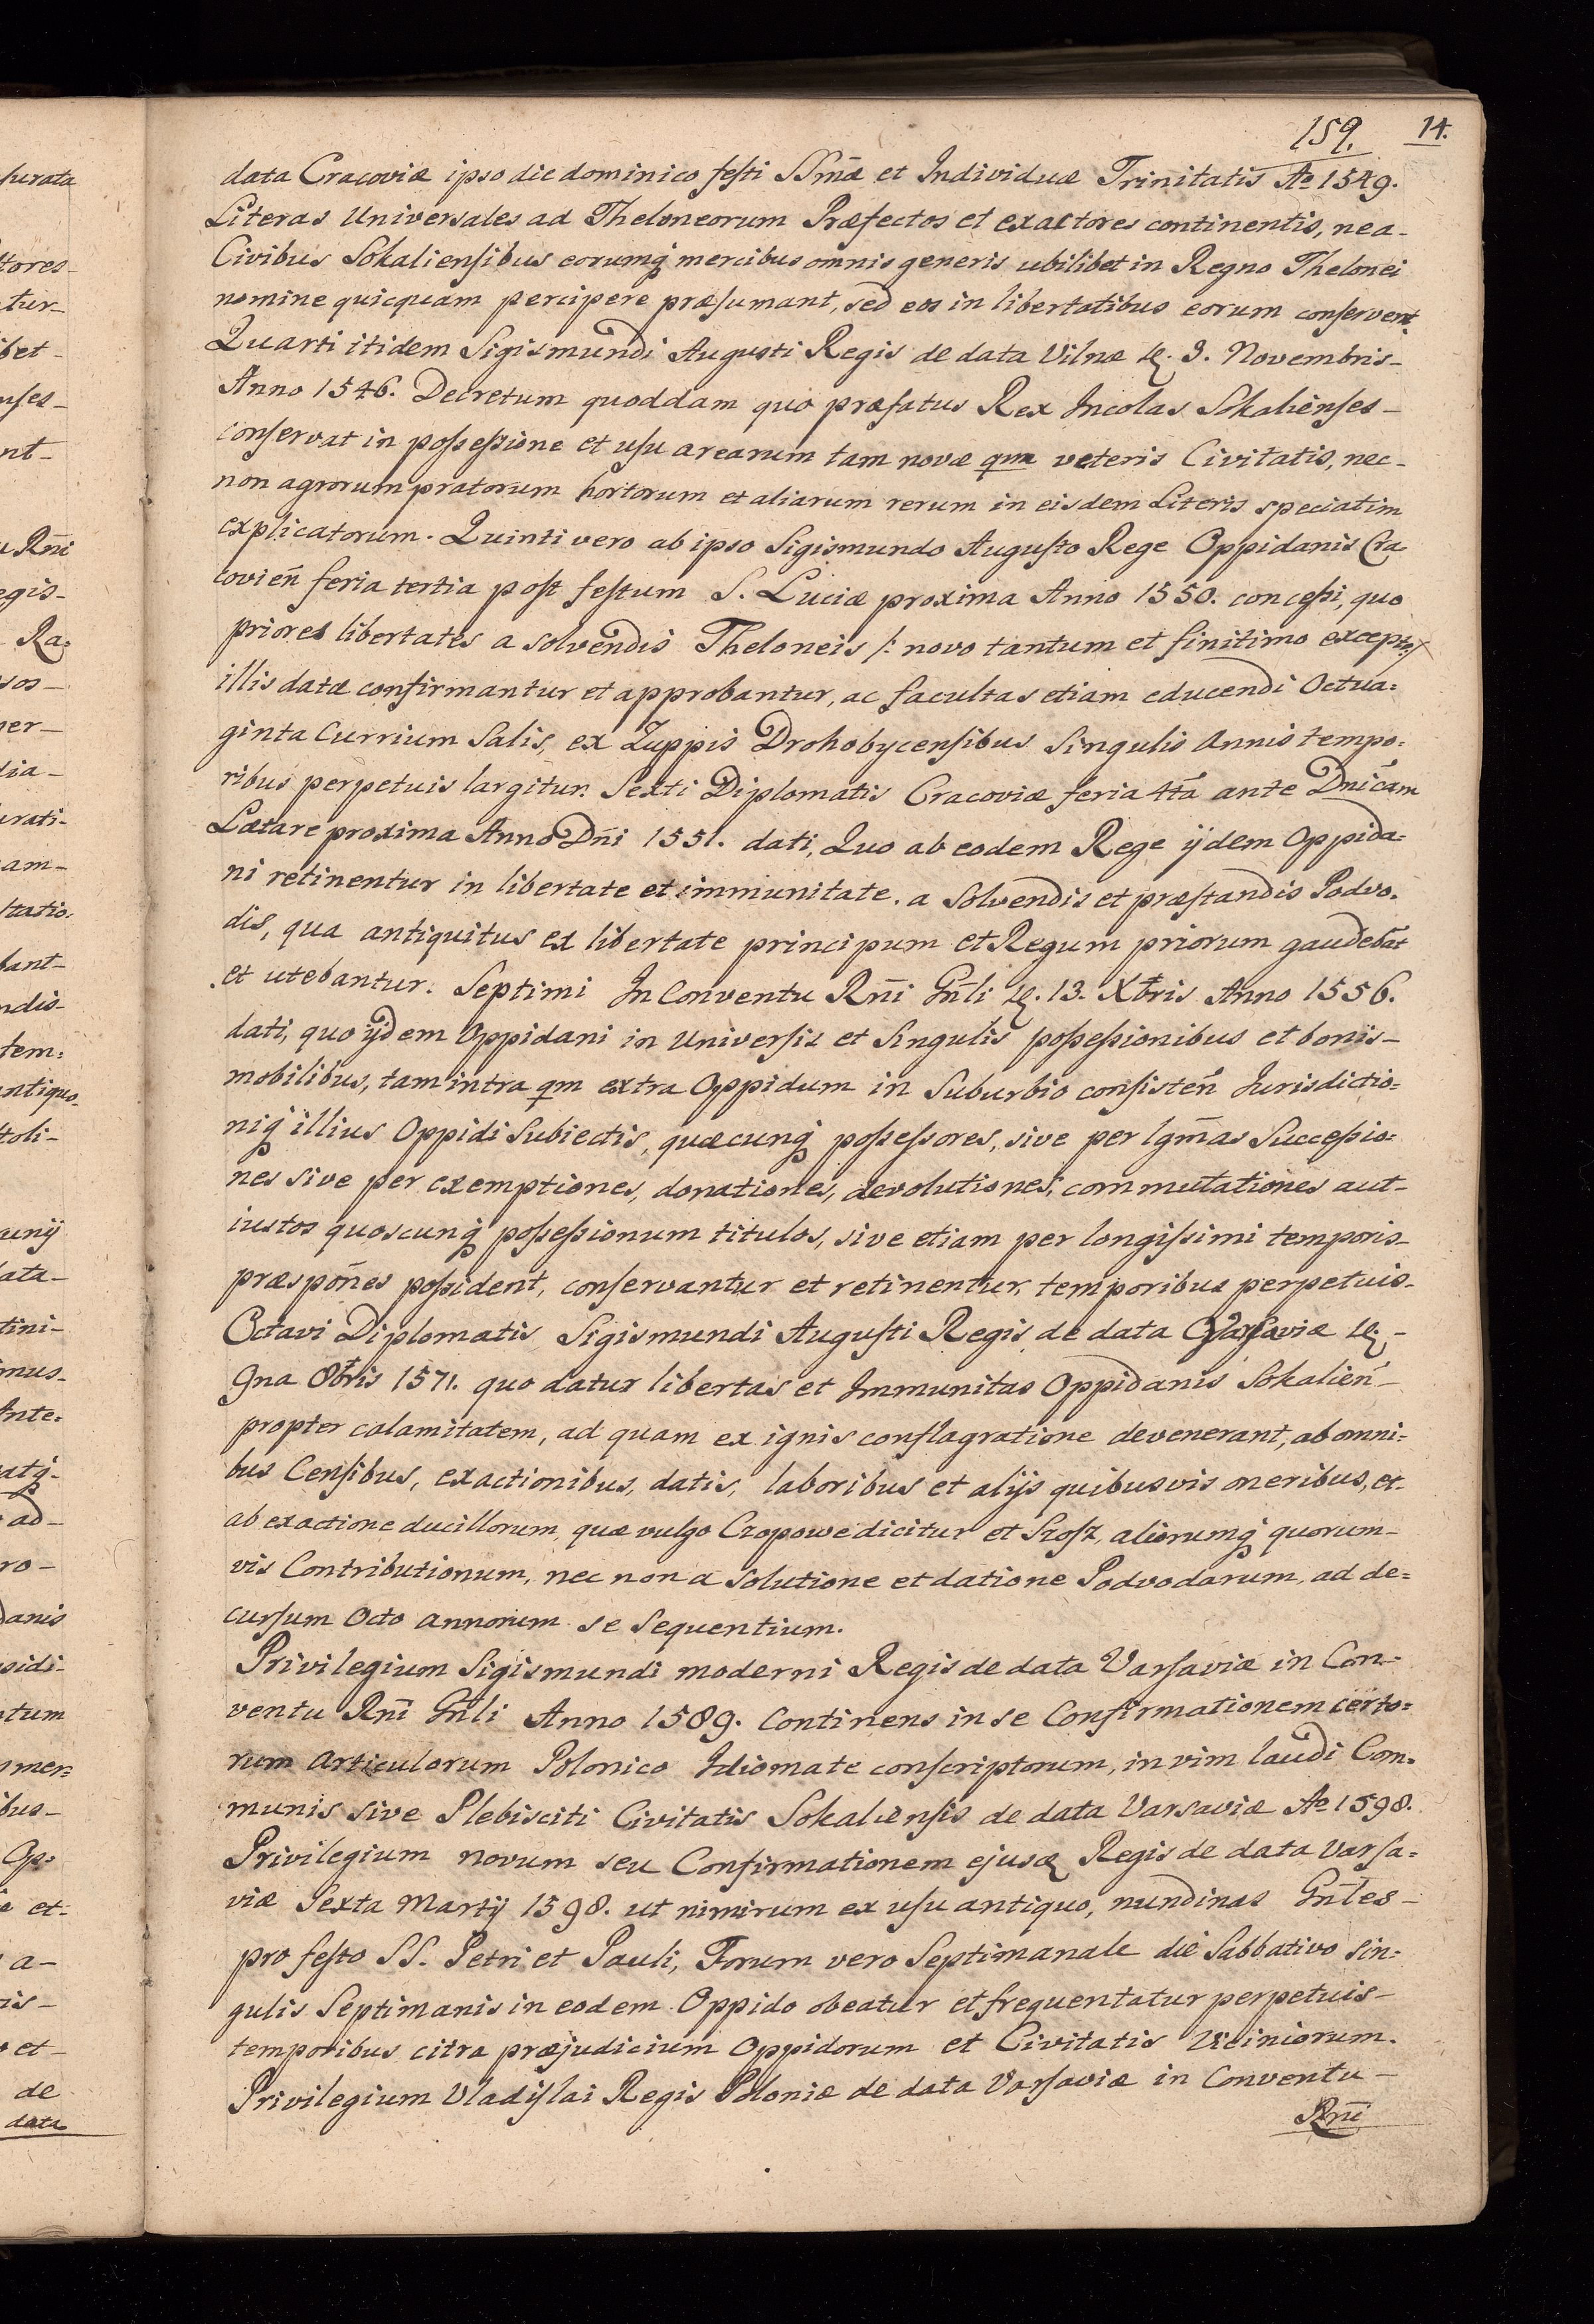 159. 14.
data Cracoviæ ipso die dominico festi SSm̄æ et Individuæ Trinitatis Ao 1549.
Literas Universales ad Theloneorum Præfectos et exactores continentis, ne a-
Civibus Sokaliensibus eorumq mercibus omnis generis ubilibet in Regno Thelonei
nomine quicquam percipere præsumant, sed eos in libertatibus eorum conservent.
Quarti itidem Sigismundi Augusti Regis de data Vilnæ 3. Novembris-
Anno 1546. Decretum quoddam quo præfatus Rex Incolas Sokalienses-
conservat in possessione et usu arearum tam novæ qm veteris Civitatis, nec-
non agrorum pratorum hortorum et aliarum rerum in eisdem Literis speciatim
explicatorum. Quinti vero ab ipso Sigismundo Augusto Rege Oppidanis Cra
covien̄ feria tertia post festum S. Luciæ proxima Anno 1550. concessi, quo
priores libertates a solvendis Theloneis /: novo tantum et finitimo excepto/
illis datæ confirmantur et approbantur, ac facultas etiam educendi Octua=
ginta Currium Salis, ex Zuppis Drohobycensibus Singulis Annis tempo=
ribus perpetuis largitur. Sexti Diplomatis Cracoviæ feria 4tā ante Dnīcam
Lætare proxima Anno Dn̄i 1551. dati, Quo ab eodem Rege ijdem Oppida=
ni retinentur in libertate et immunitate. a Solvendis et præstandis Podvo.
dis, qua antiquitus ex libertate principum et Regum priorum gaudebāt
et utebantur. Septimi In Conventu Rn̄i Gn̄li 13. Xbris Anno 1556.
dati, quo ijdem Oppidani in Universis et Singulis possessionibus et bonis-
mobilibus, tam intra qm extra Oppidum in Suburbio consisten̄ Jurisdictio=
niq illius Oppidi Subiectis, quæcunq possessores, sive per lgm̄as Successio=
nes sive per exemptiones, donationes, devolutiones, commutationes aut-
iustos quoscunq possessionum titulos, sive etiam per longissimi temporis-
præspōnes possident, conservantur et retinentur, temporibus perpetuis-
Octavi Diplomatis Sigismundi Augusti Regis de data Varsaviæ -
9na 8bris 1571. quo datur libertas et Immunitas Oppidanis Sokalien̄-
propter calamitatem, ad quam ex ignis conflagratione devenerant, ab omni=
bus Censibus, exactionibus, datis, laboribus et alijs quibusvis oneribus, et-
ab exactione ducillorum, quæ vulgo Czopowe dicitur et Szosz, aliorumq quorum-
vis Contributionum, nec non a solutione et datione Podvodarum, ad de=
cursum Octo Annorum se Sequentium.
Privilegium Sigismundi moderni Regis de data Varsaviæ in Con-
ventu Rn̄i Gn̄li Anno 1589. Continens in se Confirmationem certo=
rum Articulorum Polonico Idiomate conscriptorum, in vim laudi Com=
munis sive Plebisciti Civitatis Sokaliensis de data Varsaviæ Ao 1598.
Privilegium novum seu Confirmationem ejusd Regis de data Varsa=
viæ Sexta Martij 1598. ut nimirum ex usu antiquo, nundinas Gn̄les-
pro festo SS. Petri et Pauli, Forum vero Septimanale die Sabbativo sin=
gulis Septimanis in eodem Oppido obeatur et frequentatur perpetuis-
temporibus citra præjudicium Oppidorum et Civitatis Viciniorum.
Privilegium Vladislai Regis Poloniæ de data Varsaviæ in Conventu-
Rn̄i